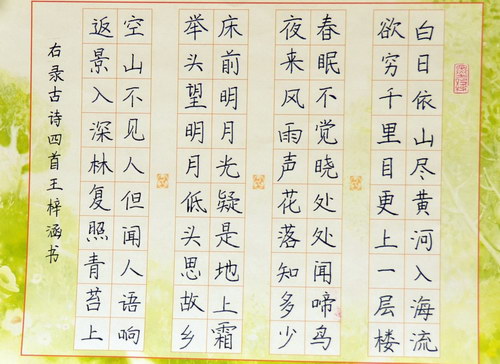 白日依山尽黄河入海流
欲穷千里目更上一层楼
春眠不觉晓处处闻啼鸟
夜来风雨声花落知多少
床前明月光疑是地上霜
举头望明月低头思故乡
空山不见人但闻人语响
返景入深林复照青苔上
右录古诗四首王梓涵书